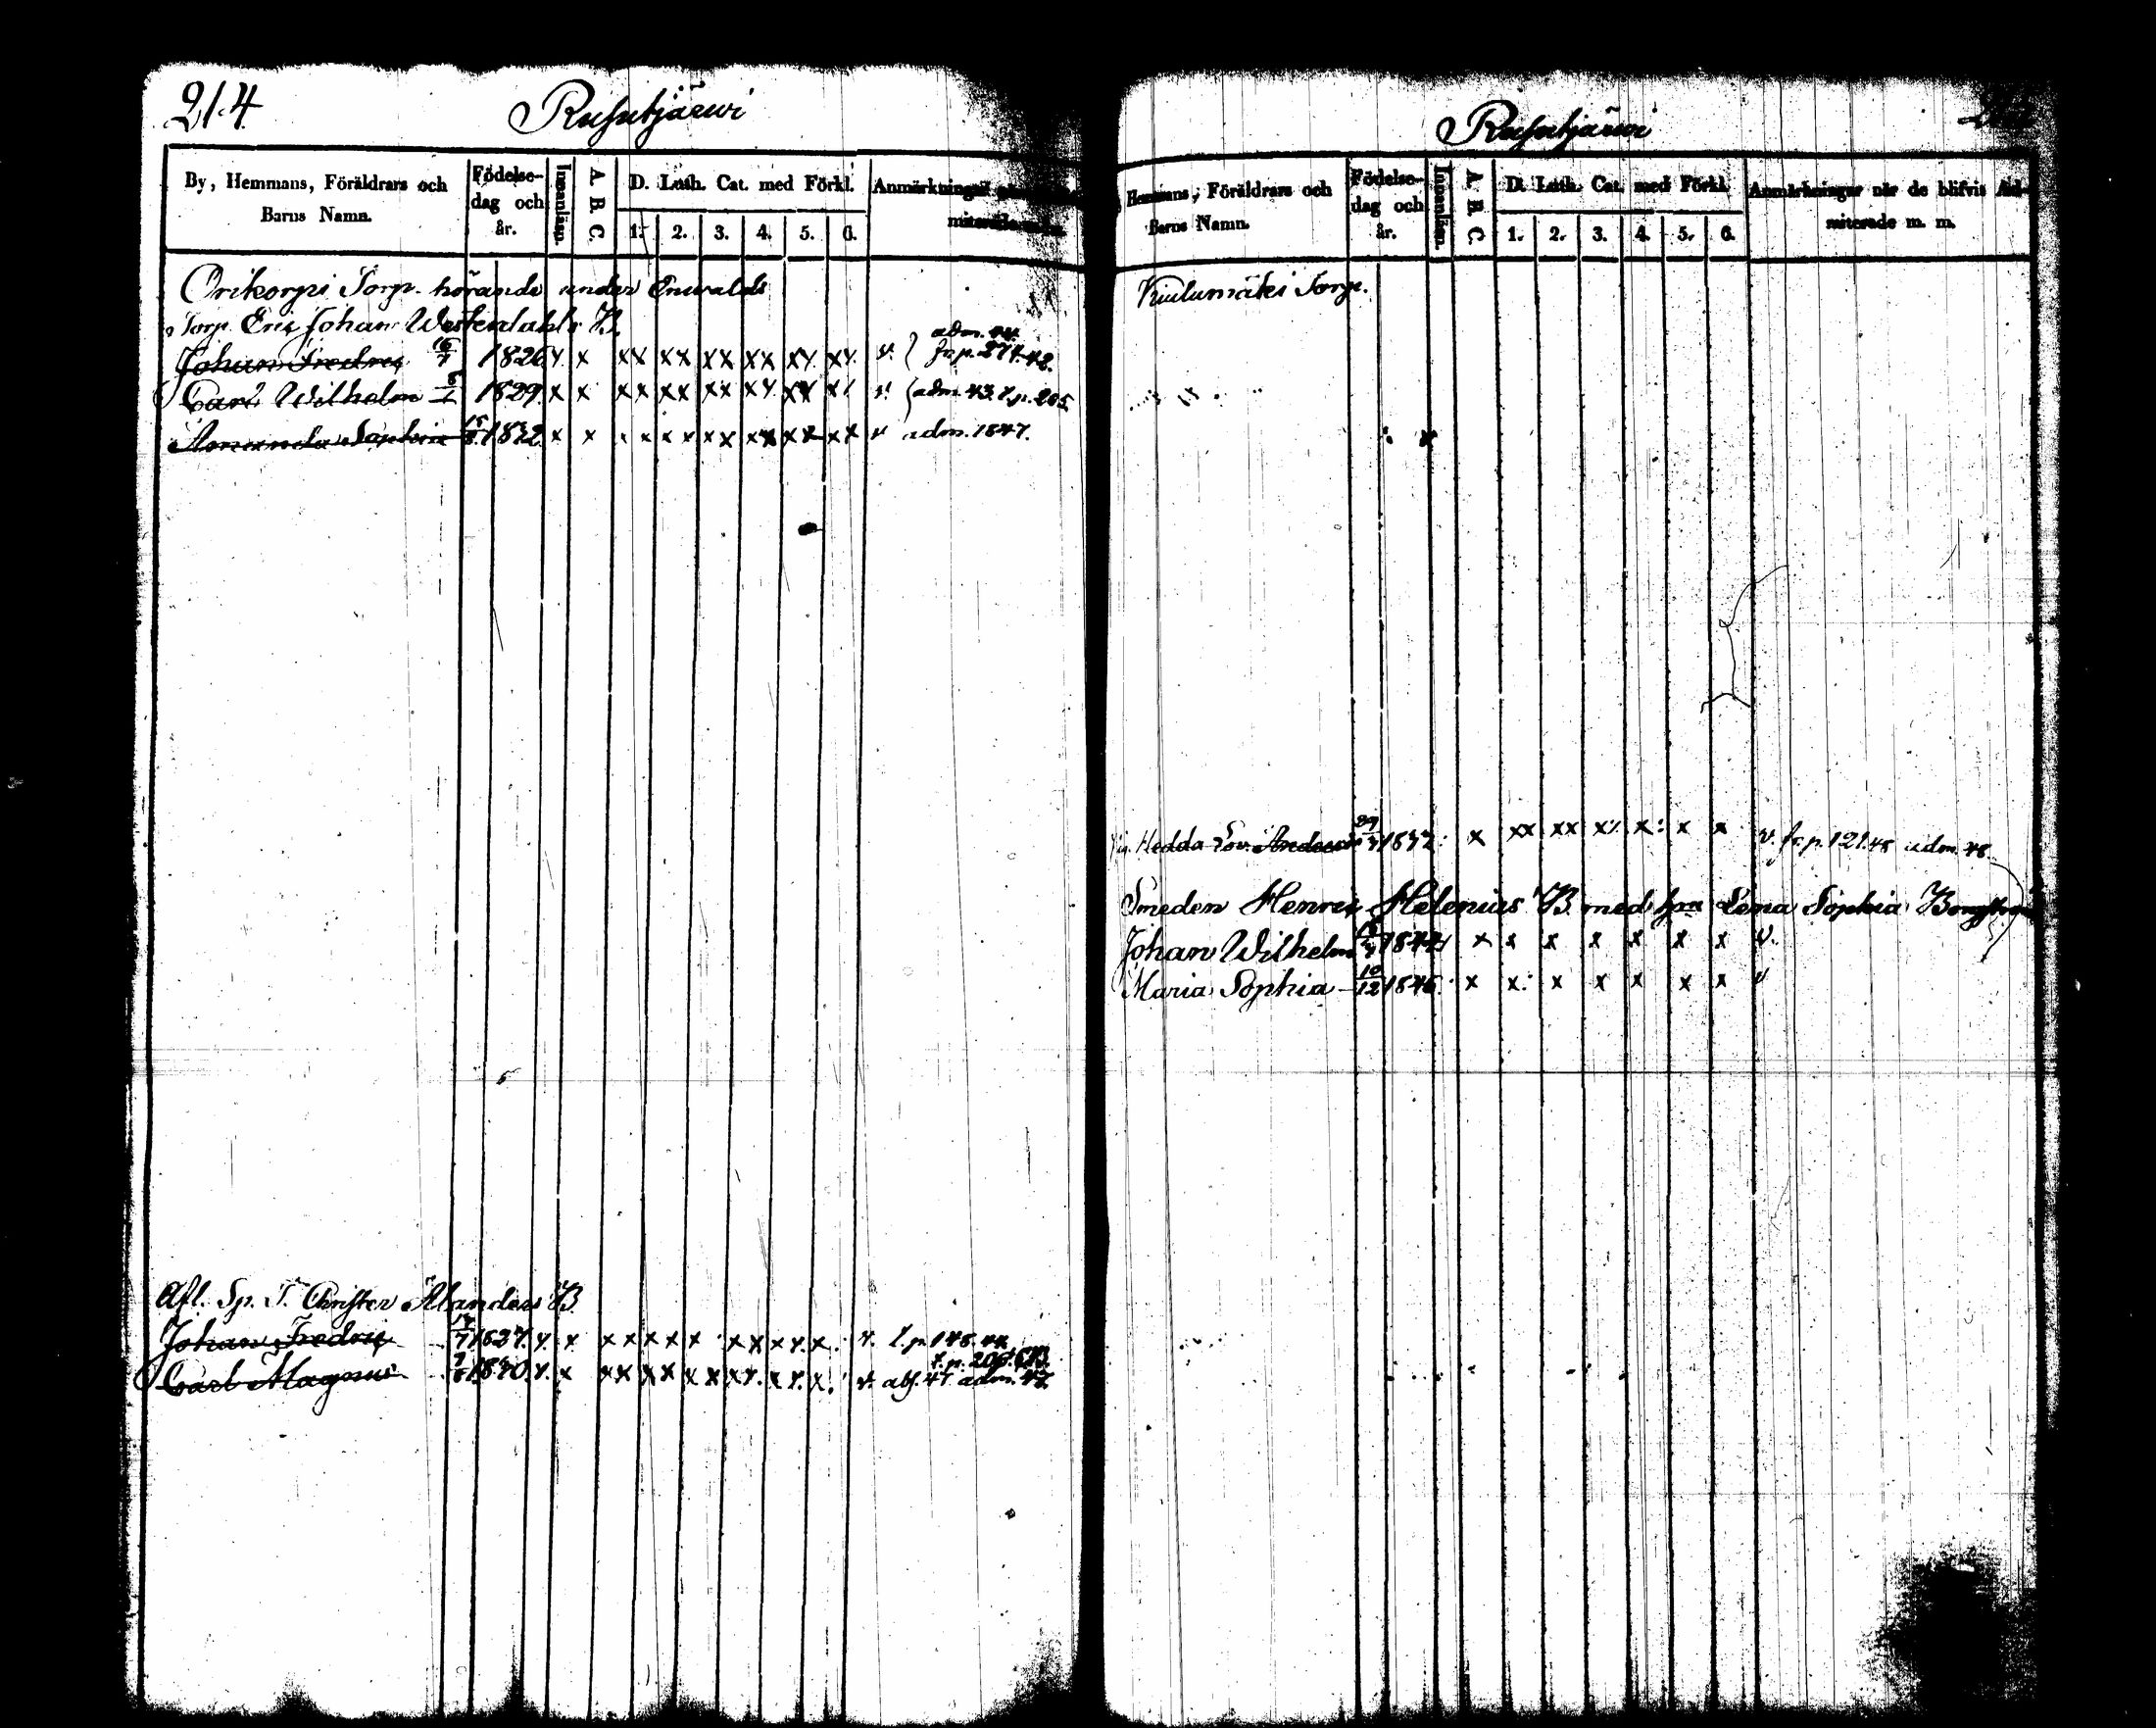 214 Rusutjärwi
By, Hemmans, Föräldrars och Barns Namn. Födelse-dag och år. Innanläsn. A. B. C. D. Luth. Cat. med Förkl. 1. 2. 3. 4. 5. 6. Anmärkningar
Orikorpi Torp. hörande under Enwalds
Torp. Eric Johan Westerdahls B.
Johan Fredric 16/7 1826 x x xx xx xx xx xx xx v. adm. 44. fr. p. 274.42.
Carl Wilhelm 1829. x x xx xx xx xx xx x v. adm. 43. t. p. 205
Amanda Sophia 1832 x x x x x x xx xx xx xx v adm. 1847.
Afl. Sp. T. Christer Ålanders B
Johan Fredric 1827. x x x x x x x x x x x. x. v. t. p. 148.44
Carl Magnus 1830. x x xx xx x x xx. x x. x. v. abs. 47 adm. 47.
Rusutjärwi
Hemmans, Föräldrars och Barns Namn. Födelse-dag och år. Innanläsn. A. B. C. D. Luth. Cat. med Förkl. 1. 2. 3. 4. 5. 6. Anmärkningar när de blifvit Admiterade m. m.
Torp.
Hedda Lov. 1832 x xx xx x x x x v. fr. p. 121.48 adm. 48
Smeden Henric Helenius B med hu Lena Sophia
Johan Wilhelm 1844 x x x x x x x v.
Maria Sophia 10/12 1846 x x x x x x x v